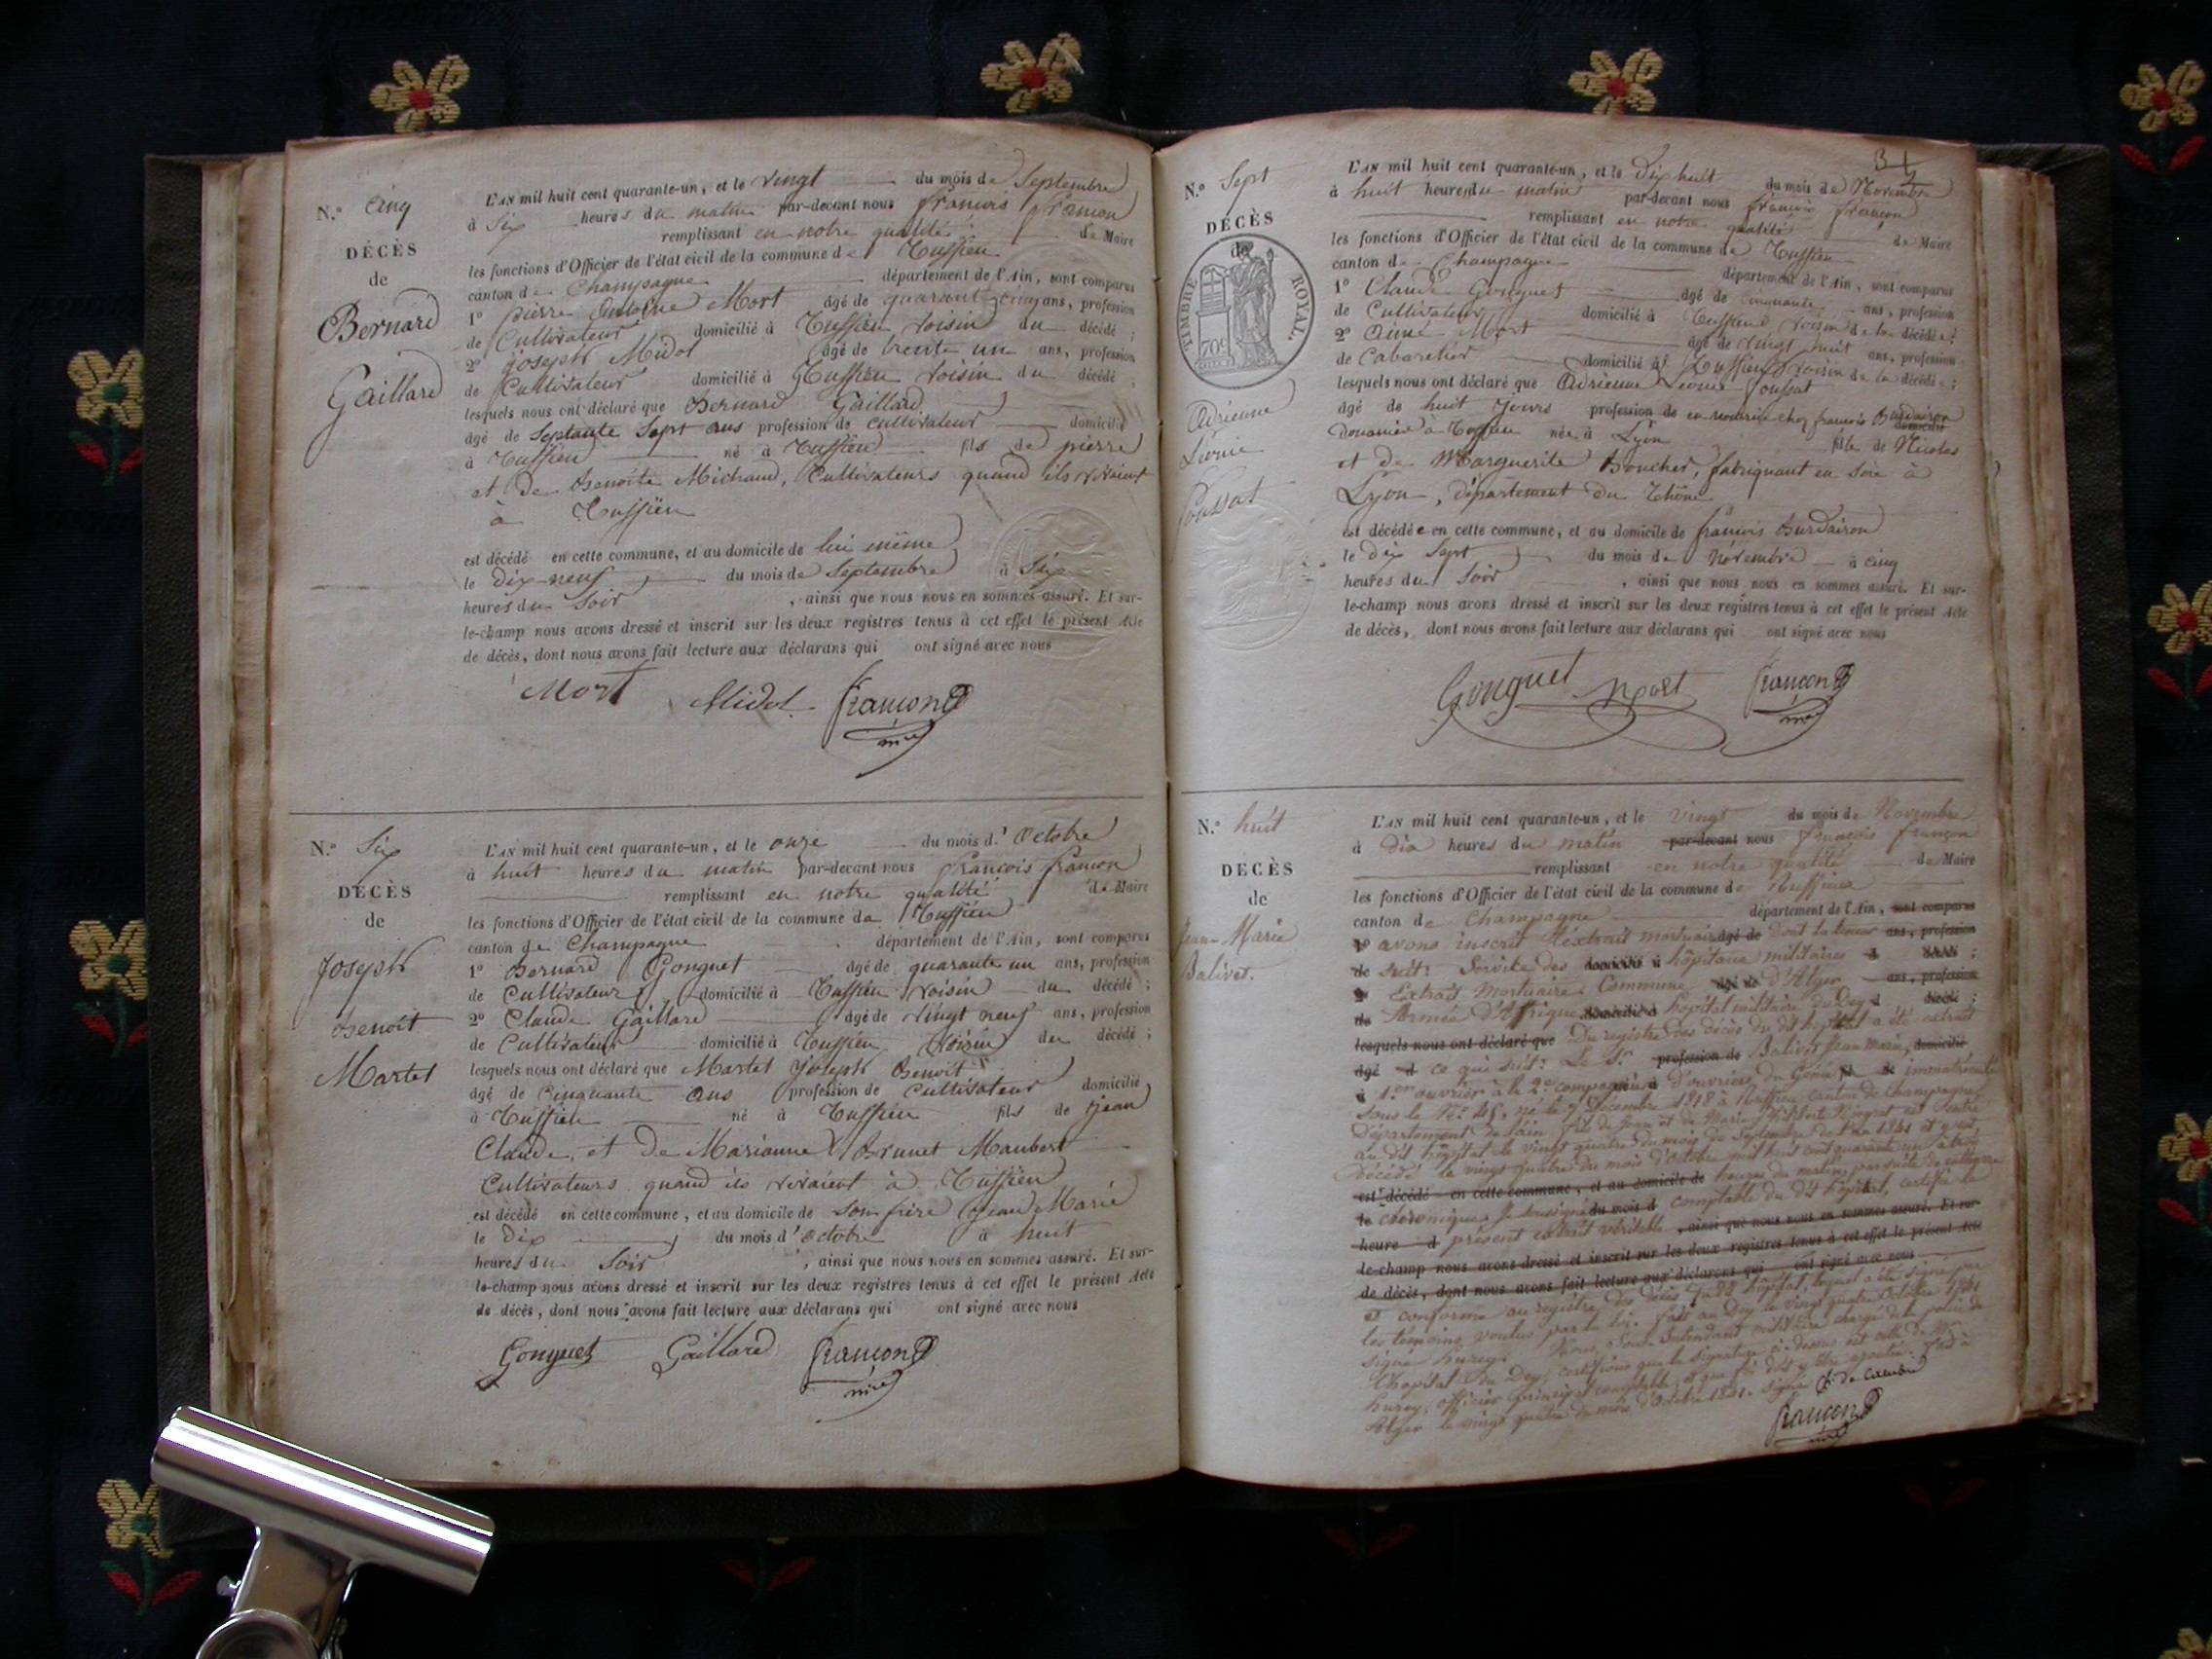 N.º Cinq
DÉCÈS
de
Bernard
Gaillard
L'AN mil huit cent quarante-un, et le vingt du mois de Septembre
à Six heures du matin par-devant nous françois françon
remplissant en notre qualité de Maire
les fonctions d'Officier de l'état civil de la commune de Ruffieu
canton de Champagne département de l'Ain, sont comparus
1º pierre Antoine Mort âgé de quarante cinq ans, profession
de Cultivateur domicilié à Ruffieu voisin du décédé ;
2º joseph Midol âgé de trente un ans, profession
de Cultivateur domicilié à Ruffieu voisin du décédé ;
lesquels nous ont déclaré que Bernard Gaillard
âgé de Septante Sept ans profession de cultivateur domicilié
à Ruffieu né à Ruffieu fils de pierre
et de Benoite Michaud, Cultivateurs quand ils vivaient
à Ruffieu
est décédé en cette commune, et au domicile de lui même
le dix-neuf du mois de Septembre à Six
heures du Soir , ainsi que nous nous en sommes assuré. Et sur-
le-champ nous avons dressé et inscrit sur les deux registres tenus à cet effet le présent Acte
de décès, dont nous avons fait lecture aux déclarans qui ont signé avec nous
Mort Midol françon
mre
N.º Six
DÉCÈS
de
Joseph
Benoit
Martel
L'AN mil huit cent quarante-un, et le onze du mois d' Octobre
à huit heures du matin par-devant nous françois françon
remplissant en notre qualité de Maire
les fonctions d'Officier de l'état civil de la commune de Ruffieu
canton de Champagne département de l'Ain, sont comparus
1º Bernard Gonguet âgé de quarante un ans, profession
de Cultivateur domicilié à Ruffieu voisin du décédé ;
2º Claude Gaillard âgé de vingt neuf ans, profession
de Cultivateur domicilié à Ruffieu voisin du décédé ;
lesquels nous ont déclaré que Martel Joseph Benoit
âgé de Cinquante ans profession de Cultivateur domicilié
à Ruffieu né à Ruffieu fils de jean
Claude, et de Marianne Brunet Manbert
Cultivateurs quand ils vivaient à Ruffieu
est décédé en cette commune, et au domicile de son frère Jean Marie
le dix du mois d' octobre à huit
heures du Soir , ainsi que nous nous en sommes assuré. Et sur-
le-champ nous avons dressé et inscrit sur les deux registres tenus à cet effet le présent Acte
de décès, dont nous avons fait lecture aux déclarans qui ont signé avec nous
Gonguet Gaillard françon
mre
31
N.º Sept
DÉCÈS
de
TIMBRE ROYAL
70c
Adrienne
Léonie
Poussat
L'AN mil huit cent quarante-un, et le Dix huit du mois de Novembre
à huit heures du matin par-devant nous françois françon
remplissant en notre qualité de Maire
les fonctions d'Officier de l'état civil de la commune de Ruffieu
canton de Champagne département de l'Ain, sont comparus
1º Claude Gonguet âgé de cinquante ans, profession
de Cultivateur domicilié à Ruffieu voisin de la décédée ;
2º Aimé Mort âgé de vingt huit ans, profession
de Cabaretier domicilié à Ruffieu voisin de la décédée ;
lesquels nous ont déclaré que Adrienne Léonie Poussat
âgé de huit jours profession de en nourrice chez françois Burdairon
Douanier à Ruffieu née à Lyon fille de Nicolas
et de Marguerite Boucher, fabriquant en soie à
Lyon, département du Rhône
est décédée en cette commune, et au domicile de françois Burdairon
le dix Sept du mois de Novembre à cinq
heures du Soir , ainsi que nous nous en sommes assuré. Et sur-
le-champ nous avons dressé et inscrit sur les deux registres tenus à cet effet le présent Acte
de décès, dont nous avons fait lecture aux déclarans qui ont signé avec nous
Gonguet Mort françon
mre
N.º huit
DÉCÈS
de
Jean-Marie
Balivet.
L'AN mil huit cent quarante-un, et le vingt du mois de Novembre
à dix heures du matin par-devant nous françois françon
remplissant en notre qualité de Maire
les fonctions d'Officier de l'état civil de la commune de Ruffieu
canton de Champagne département de l'Ain, sont comparus
1º avons inscrit l'extrait mortuaire âgé de dont la teneur ans, profession
de suit: Service des hôpitaux militaires
2º Extrait Mortuaire. Commune d'Alger ans, profession
de Armée d'Affrique domicilié à hôpital militaire du Dey décédé ;
lesquels nous ont déclaré que Du registre des décès du dit hôpital a été extrait
âgé d ce qui suit: Le Sr. profession de Balivet Jean Marie, domicilié
à 1er ouvrier à la 2e compagnie d'ouvriers du Génie immatriculé
sous le No. 48, né le 7 Décembre 1818 à Ruffieu canton de Champagne
Département de l'Ain, fils de Jean et de Marie est entré
au dit hôpital le vingt quatre du mois de Septembre de l'an 1841 et y est
Décédé le vingt quatre du mois d'Octobre mil huit cent quarante un à trois
est décédé en cette commune, et au domicile de heures du matin, par suite de
le chronique. Je soussigné du mois d comptable du dit hôpital, certifie le
heure d présent extrait véritable , ainsi que nous nous en sommes assuré. Et sur-
le-champ nous avons dressé et inscrit sur les deux registres tenus à cet effet le présent Acte
de décès, dont nous avons fait lecture aux déclarans qui ont signé avec nous
et conforme au registre des décès du dit hôpital, lequel a été signé par
les témoins voulus par la loi. fait au Dey le vingt quatre Octobre 1841
signé hurey. Nous, Sous-Intendant militaire chargé de la police de
l'hôpital du Dey, certifions que la signature ci-dessus est celle de Mr
hurey, officier principal comptable, et que foi doit y être ajoutée. fait à
Alger le vingt quatre du mois d'Octobre 1841. Signé
françon
mre